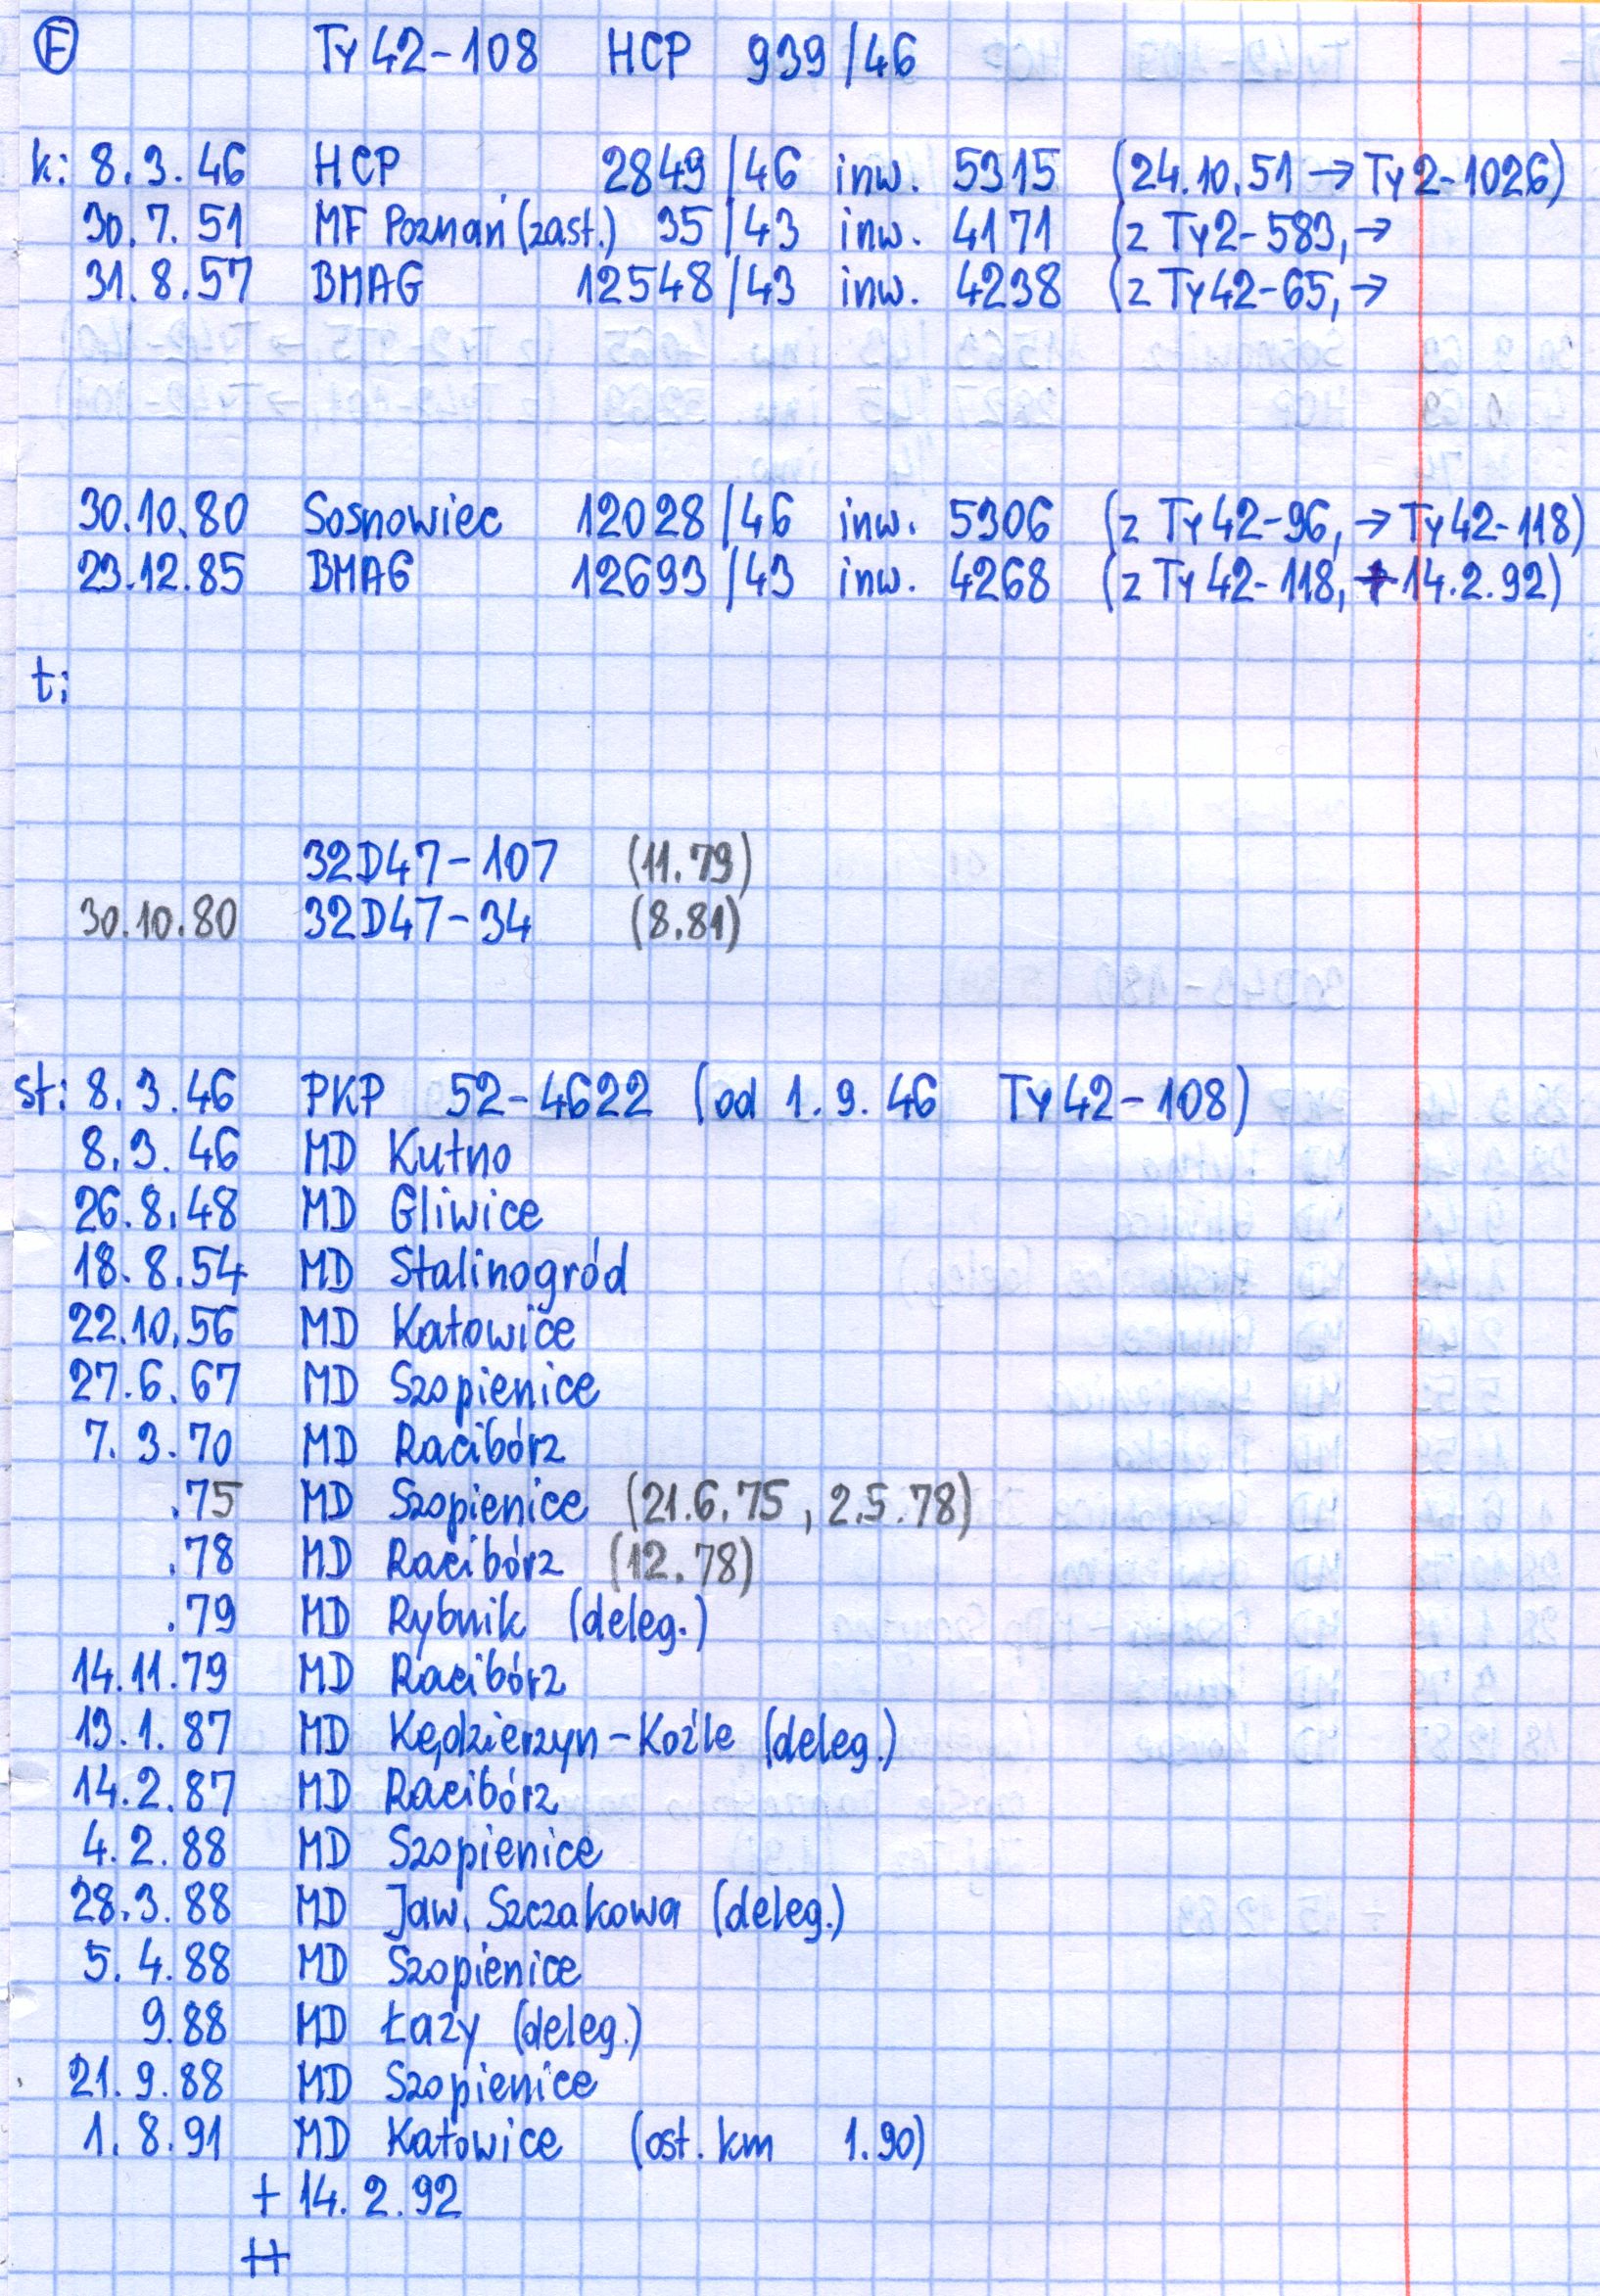 F Ty42-108 HCP 939/46
k: 8.3.46 HCP 2849/46 inw. 5315 (24.10.51 → Ty2-1026)
30.7.51 MF Poznań (zast.) 35/43 inw. 4171 (z Ty2-583, →
31.8.57 BMAG 12548/43 inw. 4238 (z Ty42-65, →
30.10.80 Sosnowiec 12028/46 inw. 5306 (z Ty42-96, → Ty42-118)
23.12.85 BMAG 12693/43 inw. 4268 (z Ty42-118, + 14.2.92)
t:
32D47-107 (11.79)
30.10.80 32D47-34 (8.81)
st: 8.3.46 PKP 52-4622 (od 1.9.46 Ty42-108)
8.3.46 MD Kutno
26.8.48 MD Gliwice
18.8.54 MD Stalinogród
22.10.56 MD Katowice
27.6.67 MD Szopienice
7.3.70 MD Racibórz
.75 MD Szopienice (21.6.75, 2.5.78)
.78 MD Racibórz (12.78)
.79 MD Rybnik (deleg.)
14.11.79 MD Racibórz
13.1.87 MD Kędzierzyn-Koźle (deleg.)
14.2.87 MD Racibórz
4.2.88 MD Szopienice
28.3.88 MD Jaw. Szczakowa (deleg.)
5.4.88 MD Szopienice
9.88 MD Łazy (deleg.)
21.9.88 MD Szopienice
1.8.91 MD Katowice (ost. km 1.90)
+ 14.2.92
++